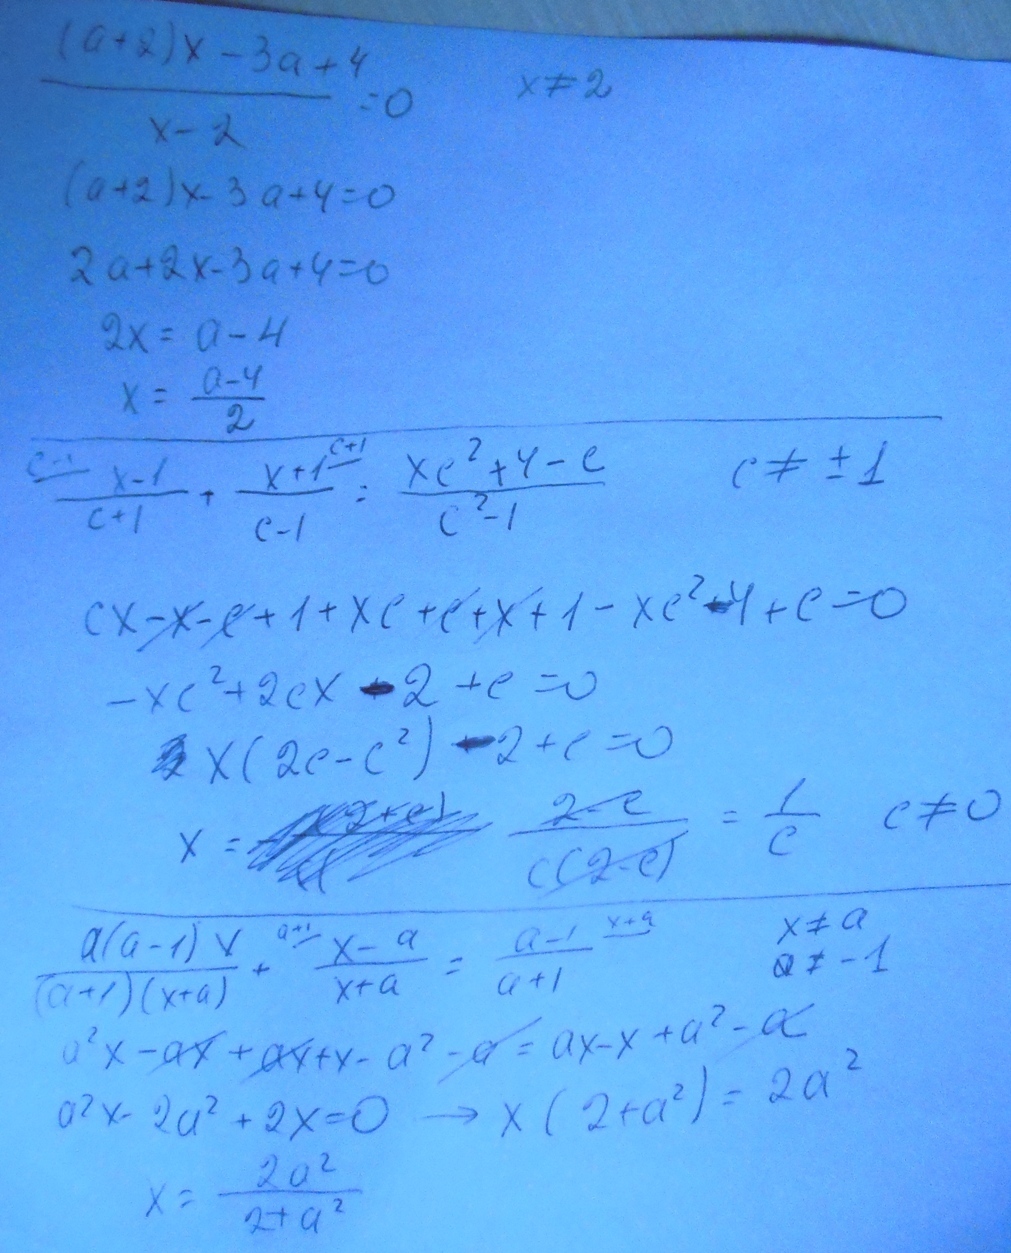 ((a+2)x-3a+4)/(x-2) =0 x≠2
(a+2)x-3a+4=0
2a+2x-3a+4=0
2x=a-4
x=(a-4)/2
c-1 (x-1)/(c+1) + (x+1)/(c-1) c+1 = (xc²+4-c)/(c²-1) c≠±1
cx-x-c+1+xc+c+x+1-xc²-4+c=0
-xc²+2cx-2+c=0
x(2c-c²)-2+c=0
x= (2-c)/(c(2-c)) = 1/c c≠0
(a(a-1)x)/((a+1)(x+a)) + a+1 (x-a)/(x+a) = (a-1)/(a+1) x+a x≠a
a≠-1
a²x-ax+ax+x-a²-a=ax-x+a²-a
a²x-2a²+2x=0 → x(2+a²)=2a²
x=2a²/(2+a²)